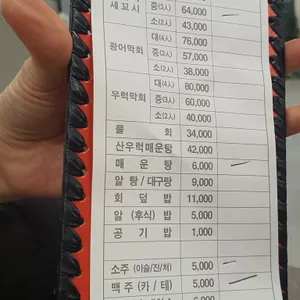 세꼬시 중(3人) 64,000
소(2人) 43,000
대(4人) 76,000
광어막회 중(3人) 57,000
소(2人) 38,000
대(4人) 80,000
우럭막회 중(3人) 60,000
소(2人) 40,000
물 회 34,000
산우럭매운탕 42,000
매 운 탕 6,000
알 탕 / 대구탕 9,000
회 덮 밥 11,000
알 (후식) 밥 5,000
공 기 밥 1,000
소주 (이슬/진/처) 5,000
맥주 (카 / 테) 5,000